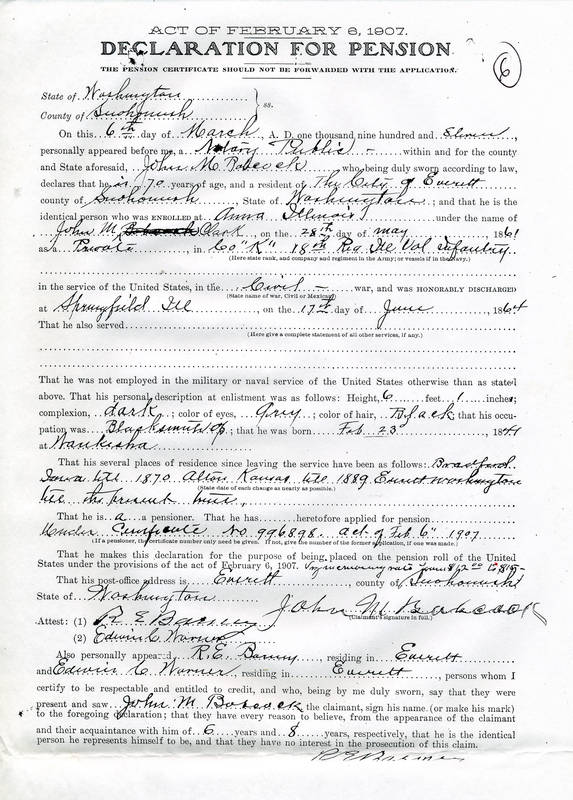 ACT OF FEBRUARY 6, 1907.
DECLARATION FOR PENSION
THE PENSION CERTIFICATE SHOULD NOT BE FORWARDED WITH THE APPLICATION.
6
State of Washington
County of Snohomish ss.
On this 6th day of March, A. D. one thousand nine hundred and Eleven
personally appeared before me, a Notary Public – within and for the county
and State aforesaid, John M. Babcock who, being duly sworn according to law,
declares that he is 70 years of age, and a resident of The City of Everett
county of Snohomish, State of Washington; and that he is the
identical person who was ENROLLED at Anna Illinois under the name of
John M. Clark, on the 28th day of May, 1861
as a Private, in Co "K" 18th Reg Ill Vol infantry
(Here state rank, and company and regiment in the Army; or vessels if in the Navy.)
in the service of the United States, in the Civil – war, and was HONORABLY DISCHARGED
(State name of war, Civil or Mexican)
at Springfield Ill, on the 17th day of June, 1864
That he also served
(Here give a complete statement of all other services, if any.)
That he was not employed in the military or naval service of the United States otherwise than as stated
above. That his personal description at enlistment was as follows: Height, 6 feet 1 inches;
complexion, dark; color of eyes, Grey; color of hair, Black; that his occu-
pation was Blacksmith; that he was born Feb 23, 1841
at Waukesha
That his several places of residence since leaving the service have been as follows: Bradford
Iowa till 1870 Alton Kansas till 1889 Everett Washington
(State date of each change as nearly as possible.)
till the present time,
That he is a pensioner. That he has heretofore applied for pension
under Certificate No 996898. act of Feb 6" 1907
(If a pensioner, the certificate number only need be given. If not, give the number of the former application, if one was made.)
That he makes this declaration for the purpose of being placed on the pension roll of the United
States under the provisions of the act of February 6, 1907.
That his post-office address is Everett, county of Snohomish
State of Washington
John M Babcock
(Claimant's signature in full.)
Attest: (1) R E
(2) Edwin C Warner
Also personally appeared R. E., residing in Everett
and Edwin C Warner residing in Everett, persons whom I
certify to be respectable and entitled to credit, and who, being by me duly sworn, say that they were
present and saw John M Babcock the claimant, sign his name (or make his mark)
to the foregoing declaration; that they have every reason to believe, from the appearance of the claimant
and their acquaintance with him of 6 years and 8 years, respectively, that he is the identical
person he represents himself to be, and that they have no interest in the prosecution of this claim.